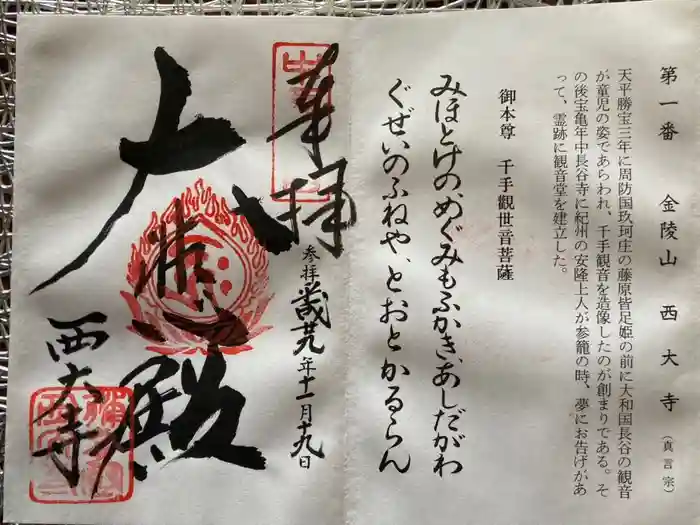 第一番　金陵山　西大寺（真言宗）
天平勝宝三年に周防国玖珂庄の藤原皆足姫の前に大和国長谷の観音
が童児の姿であらわれ、千手観音を造像したのが創まりである。そ
の後宝亀年中長谷寺に紀州の安隆上人が参籠の時、夢にお告げがあ
って、霊跡に観音堂を建立した。
御本尊　千手観世音菩薩
みほとけの、めぐみもふかき、あしだがわ
ぐぜいのふねや、とおとかるらん
奉拝
参拝 年十一月十九日
大悲殿
西大寺